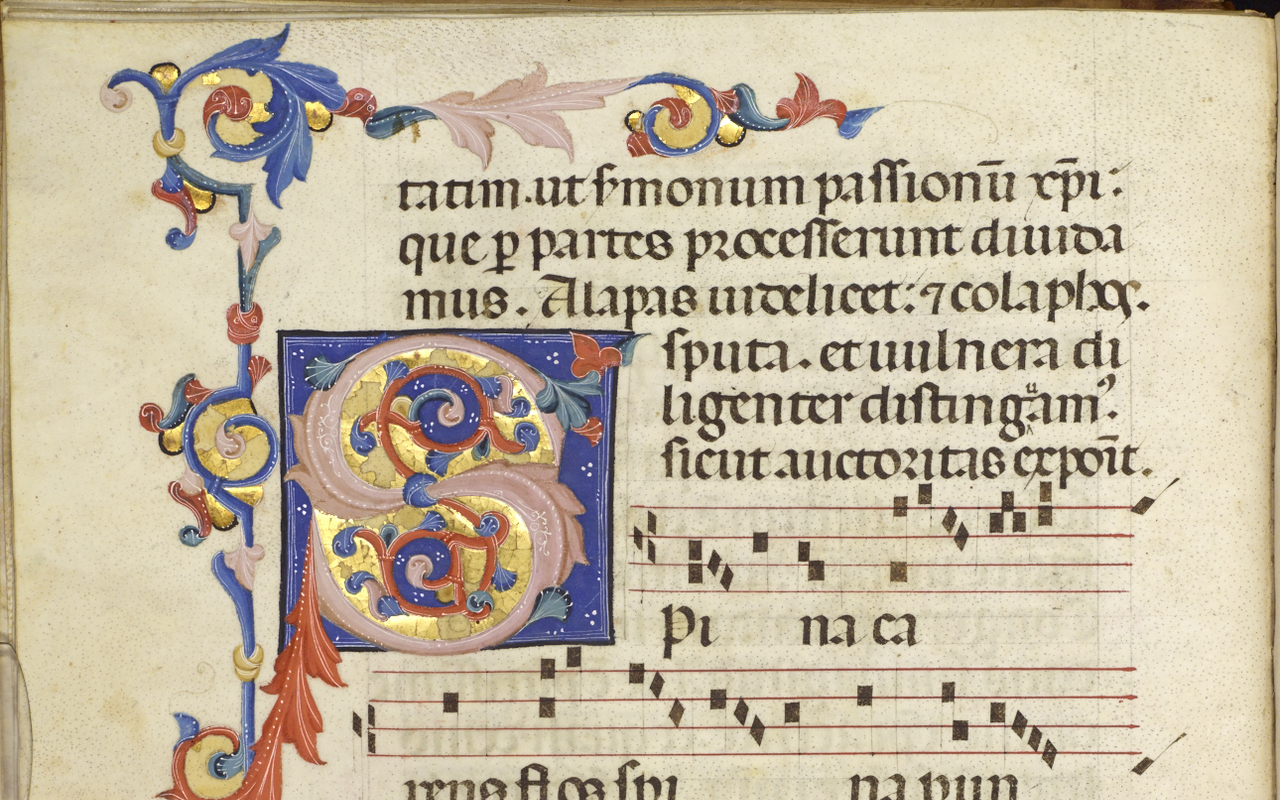 tatim. ut ẜmonum passionū xp̄i:
que ꝑ partes processerunt diuida
mus. Alapas uidelicet: ⁊ colaphoꝝ.
sputa. et uulnera di
ligenter distinguam᾽.
sicut auctoritas expoīt.
S Pi na ca
rens flos spi na pun